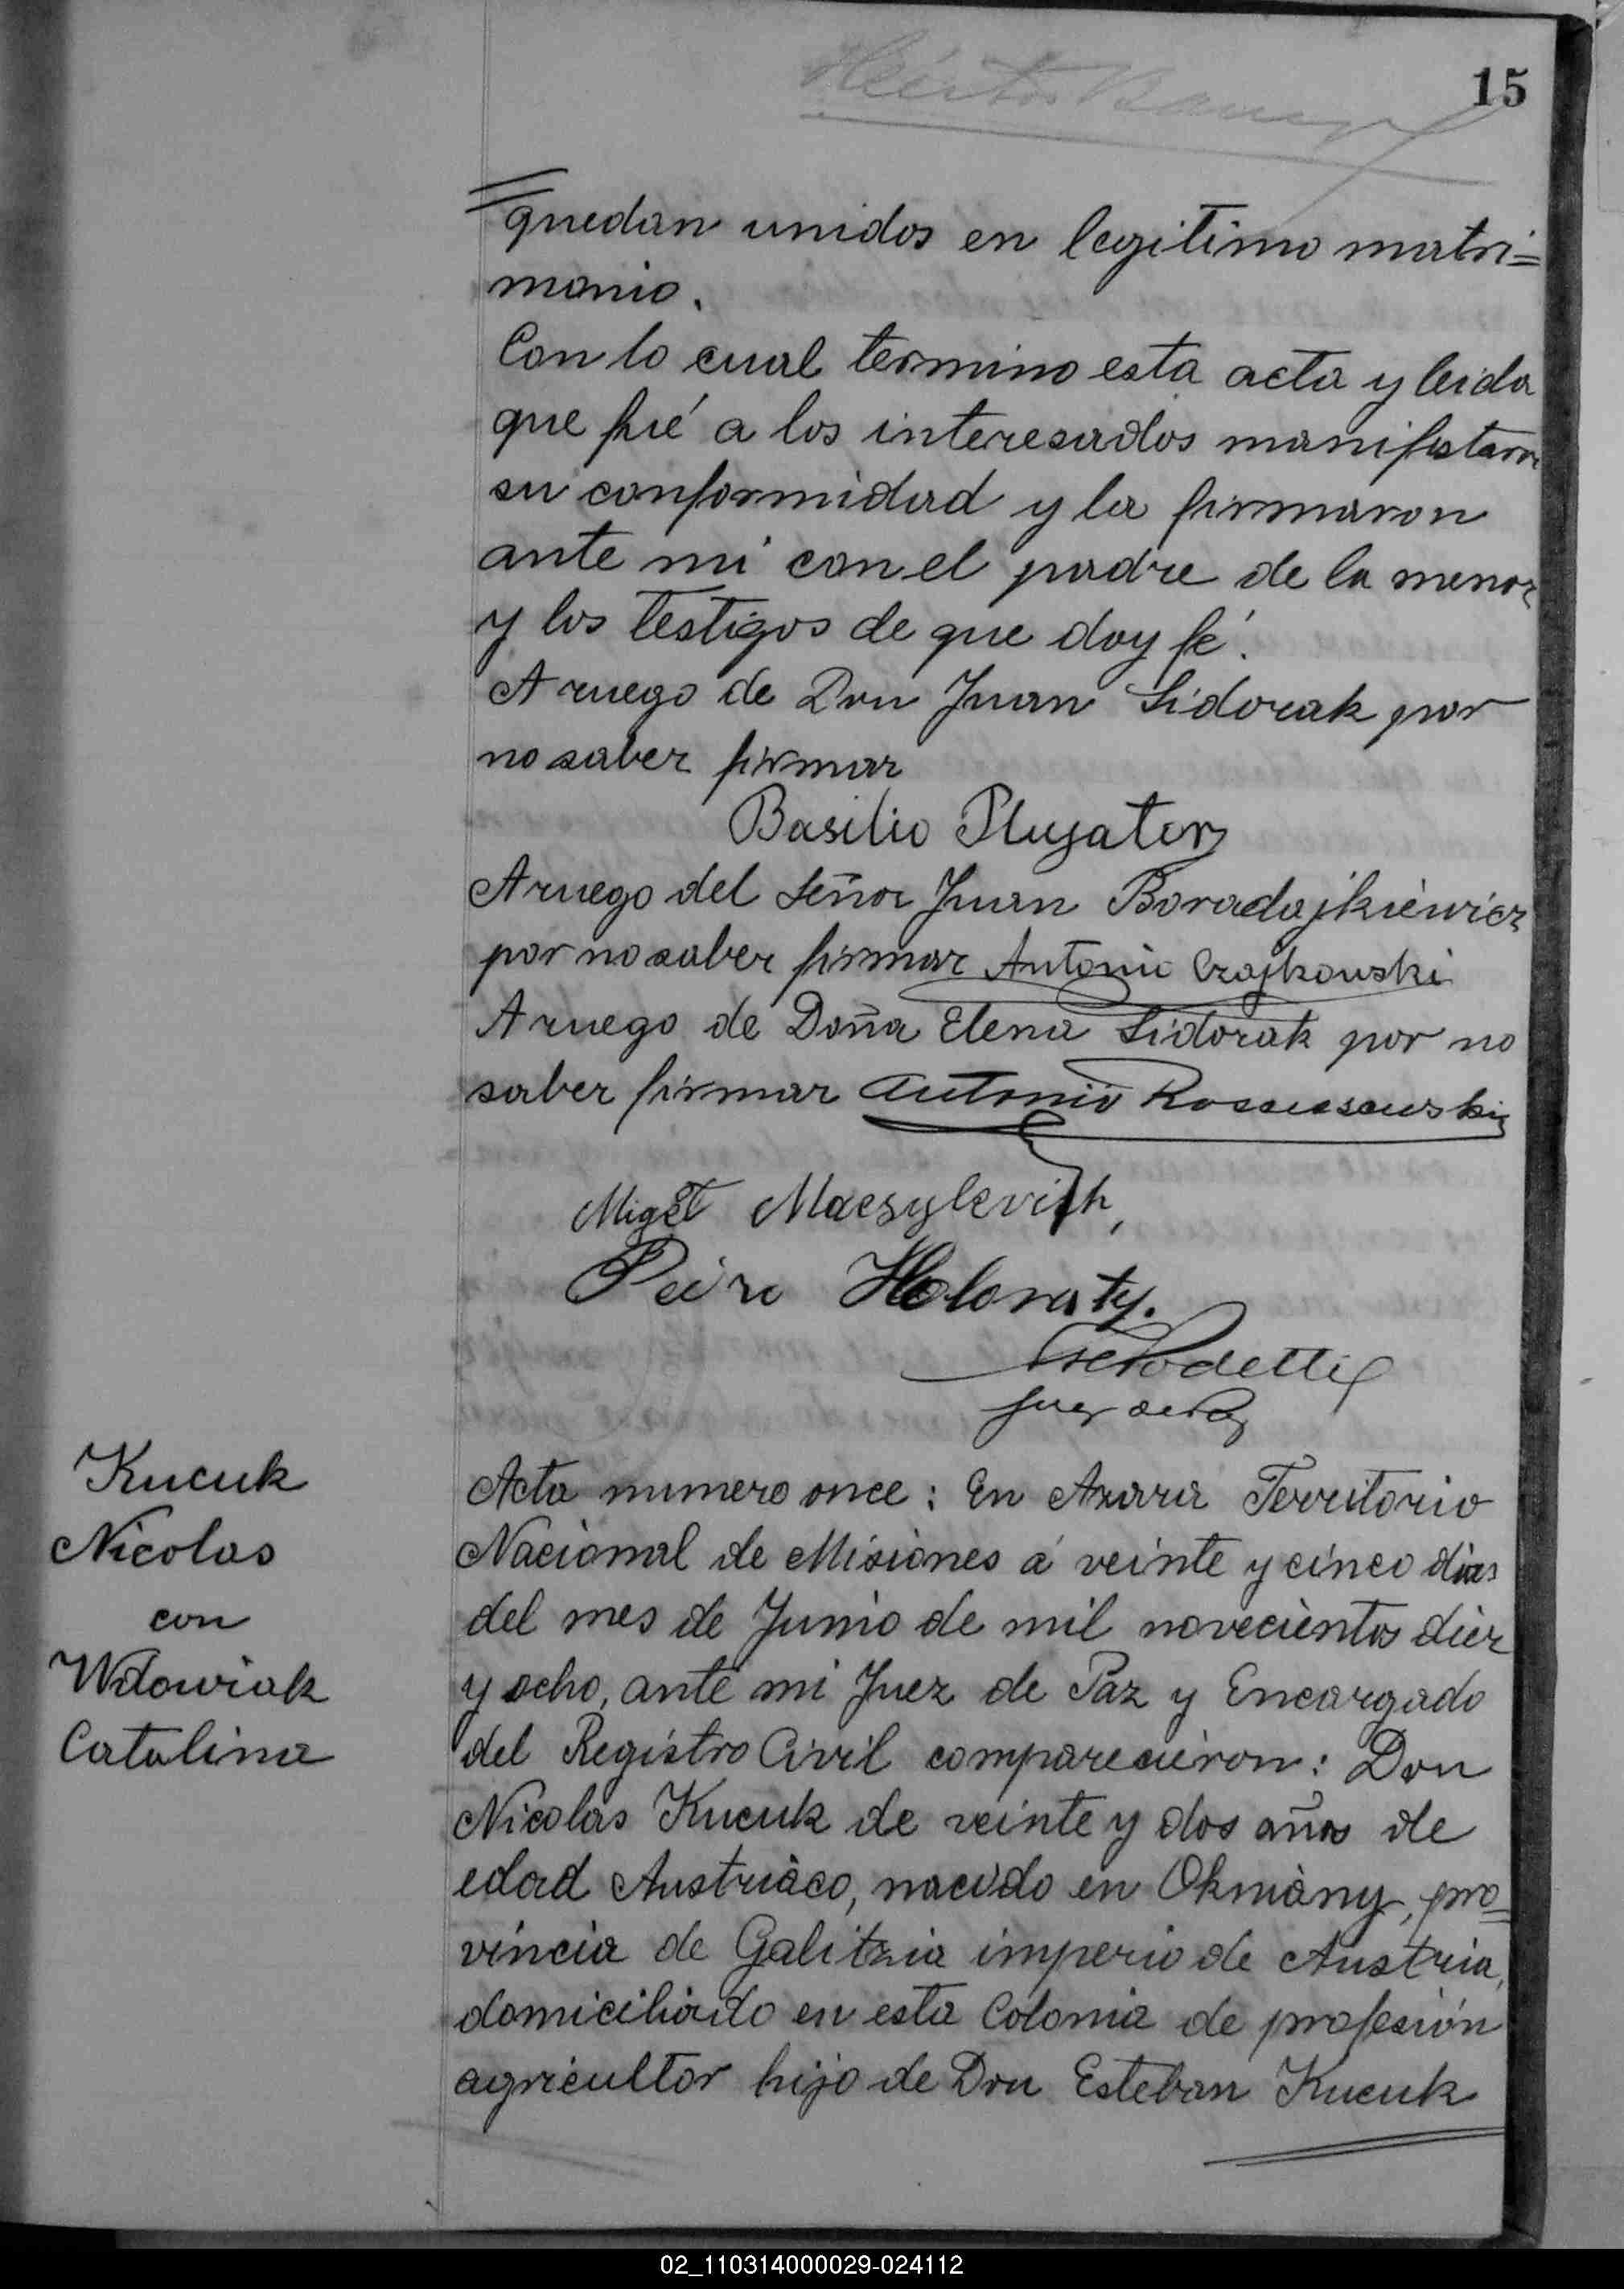 15
quedan unidos en legitimo matri=
monio.
Con lo cual termino esta acta y leida
que fué a los interesados manifestaron
su conformidad y la firmaron
ante mi con el padre de la menor
y los testigos de que doy fé.
A ruego de Don Juan Sidorak por
no saber firmar
Basilio Plugator
A ruego del Señor Juan Boradajkiewicz
por no saber firmar Antonio Czajkowski
A ruego de Doña Elena Sidorak por no
saber firmar Antonio
Holonaty.
Juez de Paz
Kucuk
Nicolas
con
Wdowiak
Catalina
Acta numero once: En Azara Territorio
Nacional de Misiones á veinte y cinco dias
del mes de Junio de mil novecientos diez
y ocho, ante mi Juez de Paz y Encargado
del Registro Civil comparecieron: Don
Nicolas Kucuk de veinte y dos años de
edad Austriaco, nacido en Okniàny, pro=
vincia de Galitzia imperio de Austria,
domiciliado en esta Colonia de profesión
agricultor hijo de Don Esteban Kucuk
02_110314000029-024112